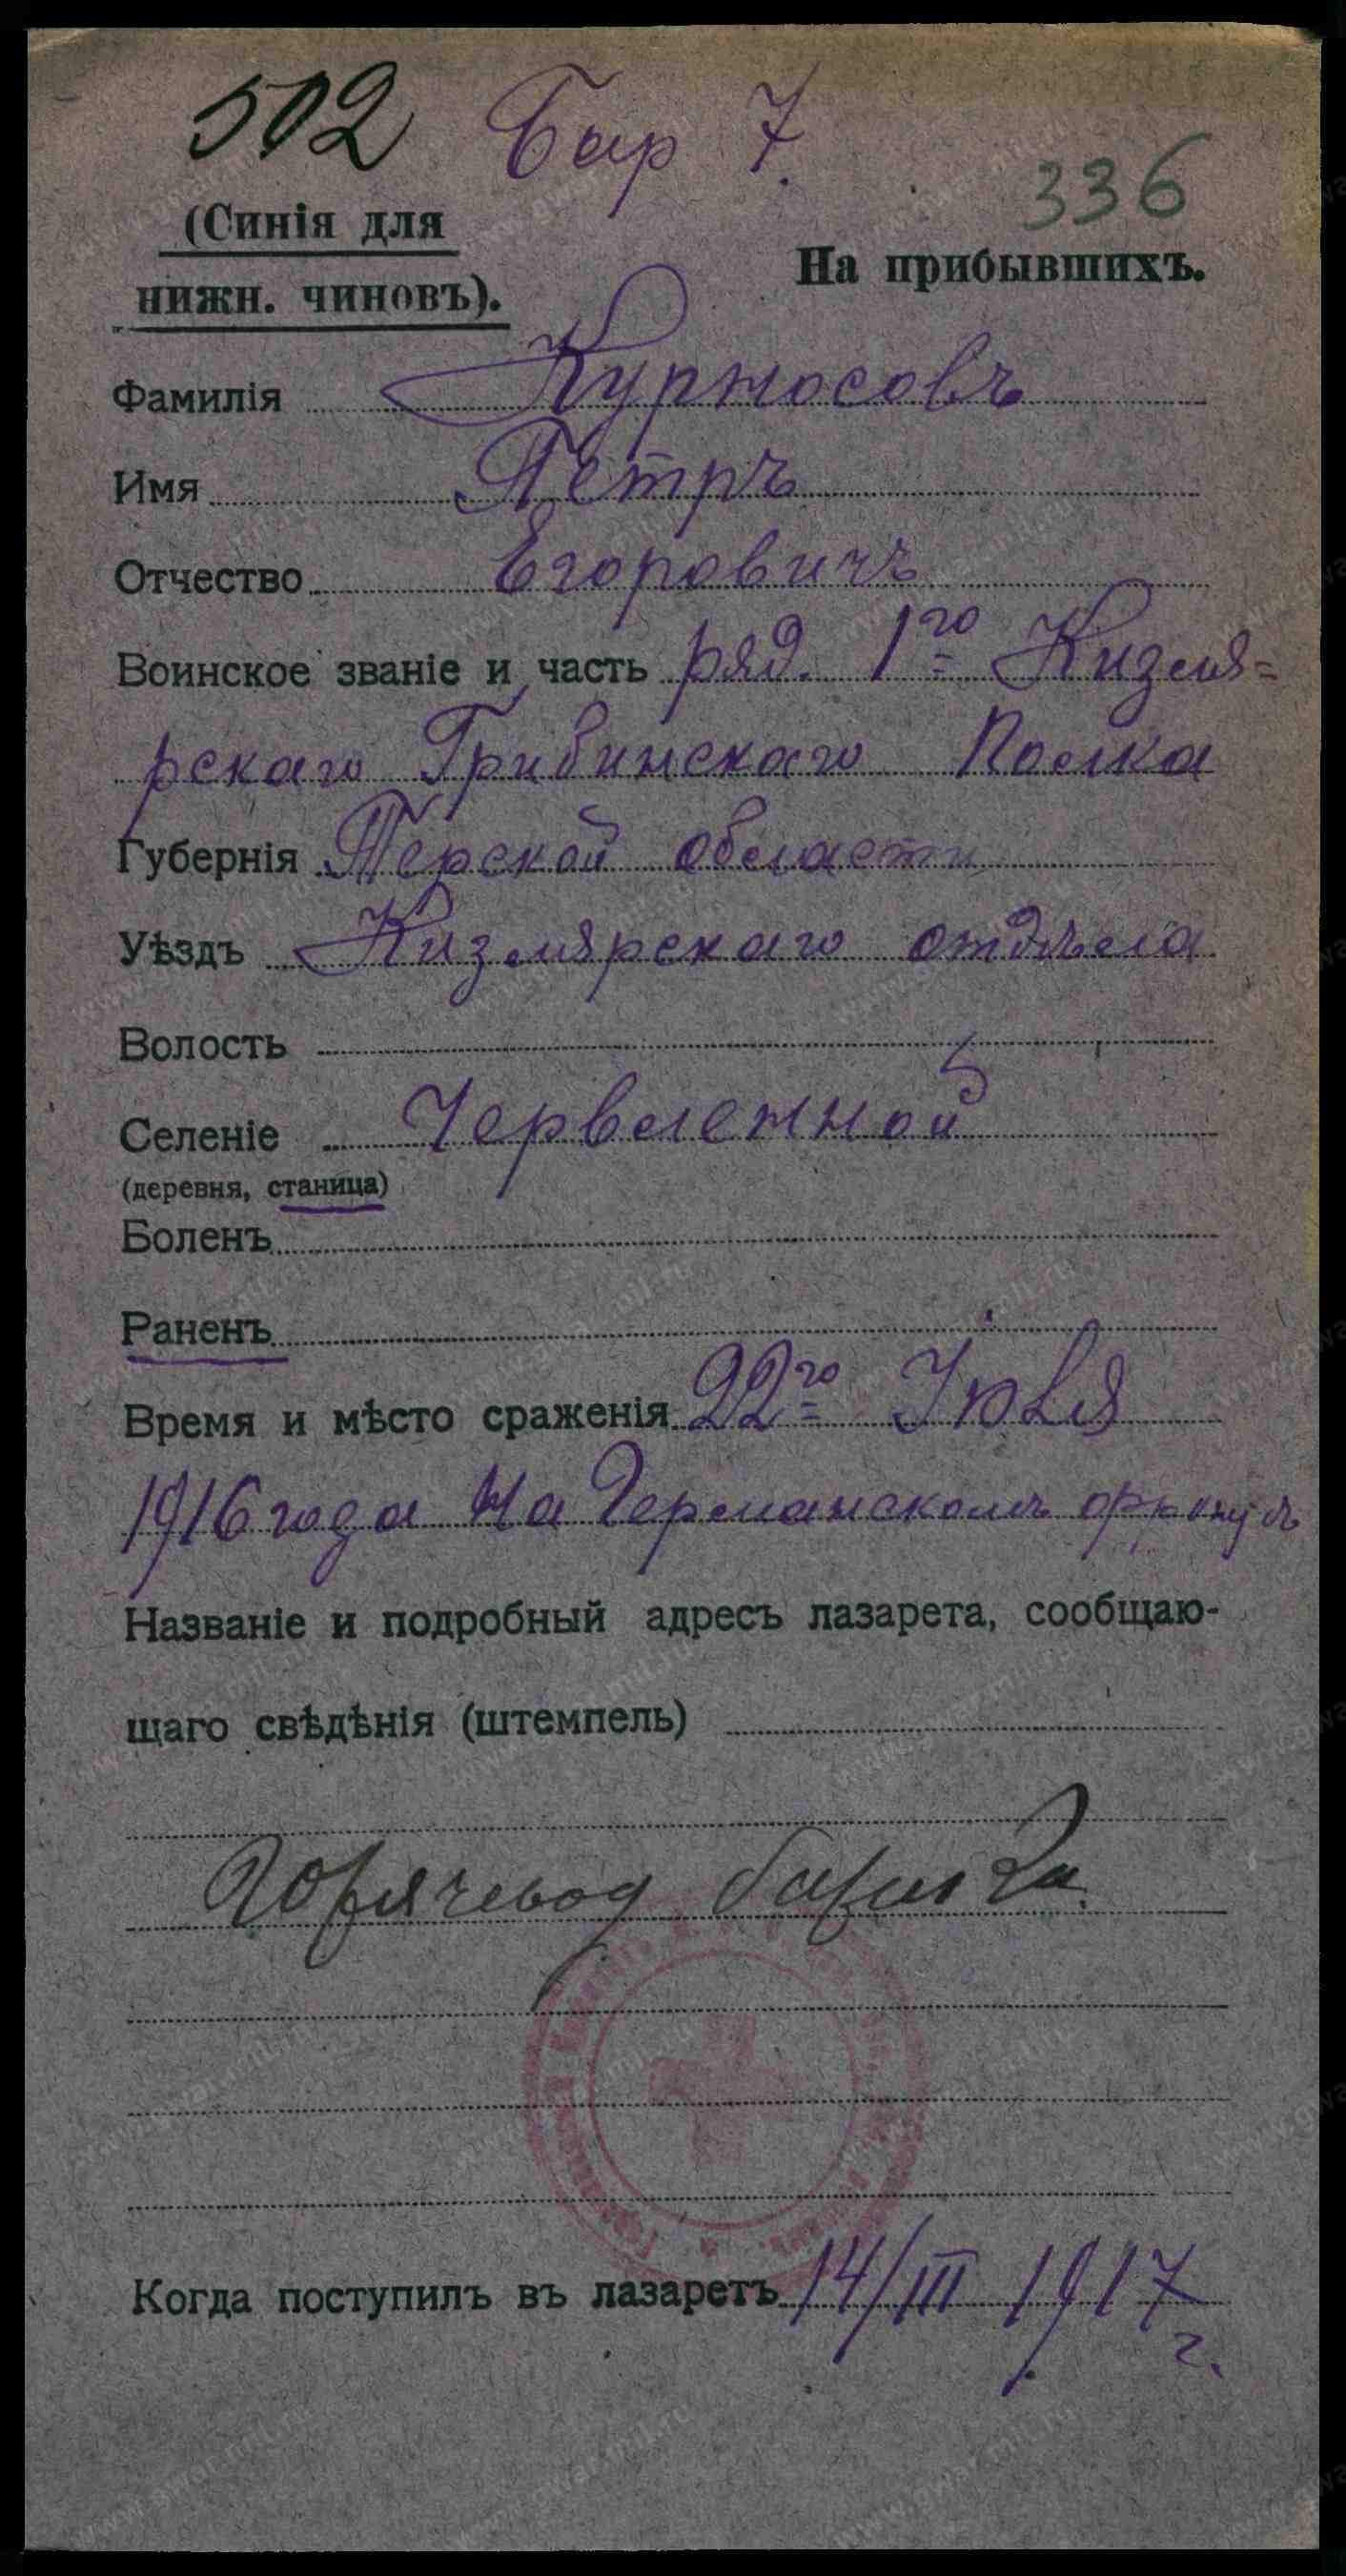 502 Бар 7.
336
(Синія для
нижн. чиновъ).
На прибывшихъ.
Фамилія Курносовъ
Имя Петръ
Отчество Егоровичъ
Воинское званіе и часть ряд. 1го Кизля=
рскаго Грибинскаго Полка
Губернія Терской области
Уѣздъ Кизлярскаго отдѣла
Волость
Селеніе Червленной
(деревня, станица)
Боленъ
Раненъ
Время и мѣсто сраженія 22го Іюля
1916 года на Германскомъ фронтѣ
Названіе и подробный адресъ лазарета, сообщаю-
щаго свѣдѣнія (штемпель)
Горячевод
Когда поступилъ въ лазаретъ 14/III 1917
г.